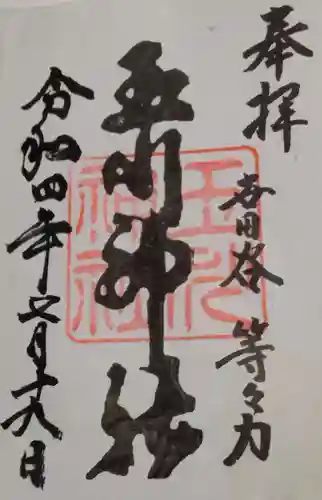 奉拝
世田谷 等々力
玉川神社
玉川
神社
令和四年 月十九日